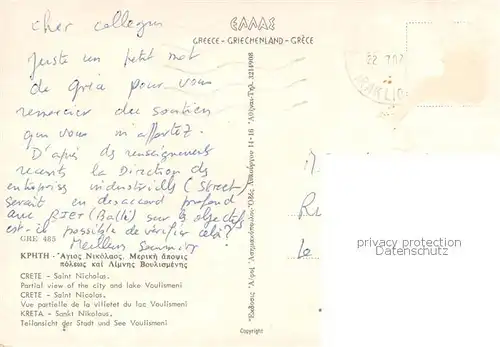 cher collegue
ΕΛΛΑΣ
GREECE - GRIECHENLAND - GRÈCE
Juste un petit mot
de pour vous
remercier du soutien
que vous m'apportez.
D'après des renseignements
récents la Direction des
entreprises industrielles (Street)
serait en désaccord profond
avec (Balle) sur les objectifs
est-il possible de vérifier cela?
Meilleurs
GRE 485
ΚΡΗΤΗ - Ἅγιος Νικόλαος. Μερική ἄποψις
πόλεως καί Λίμνης Βουλισμένης
CRETE - Saint Nicholas.
Partial view of the city and lake Voulismeni
CRETE - Saint Nicolas.
Vue partielle de la villetet du lac Voulismeni
KRETA - Sankt Nikolaus.
Teilansicht der Stadt und See Voulismeni
14-16 Ἀθῆναι-Τηλ. 3214908
Copyright
22
IRAKLIO
philatelic protection
oldthing.de